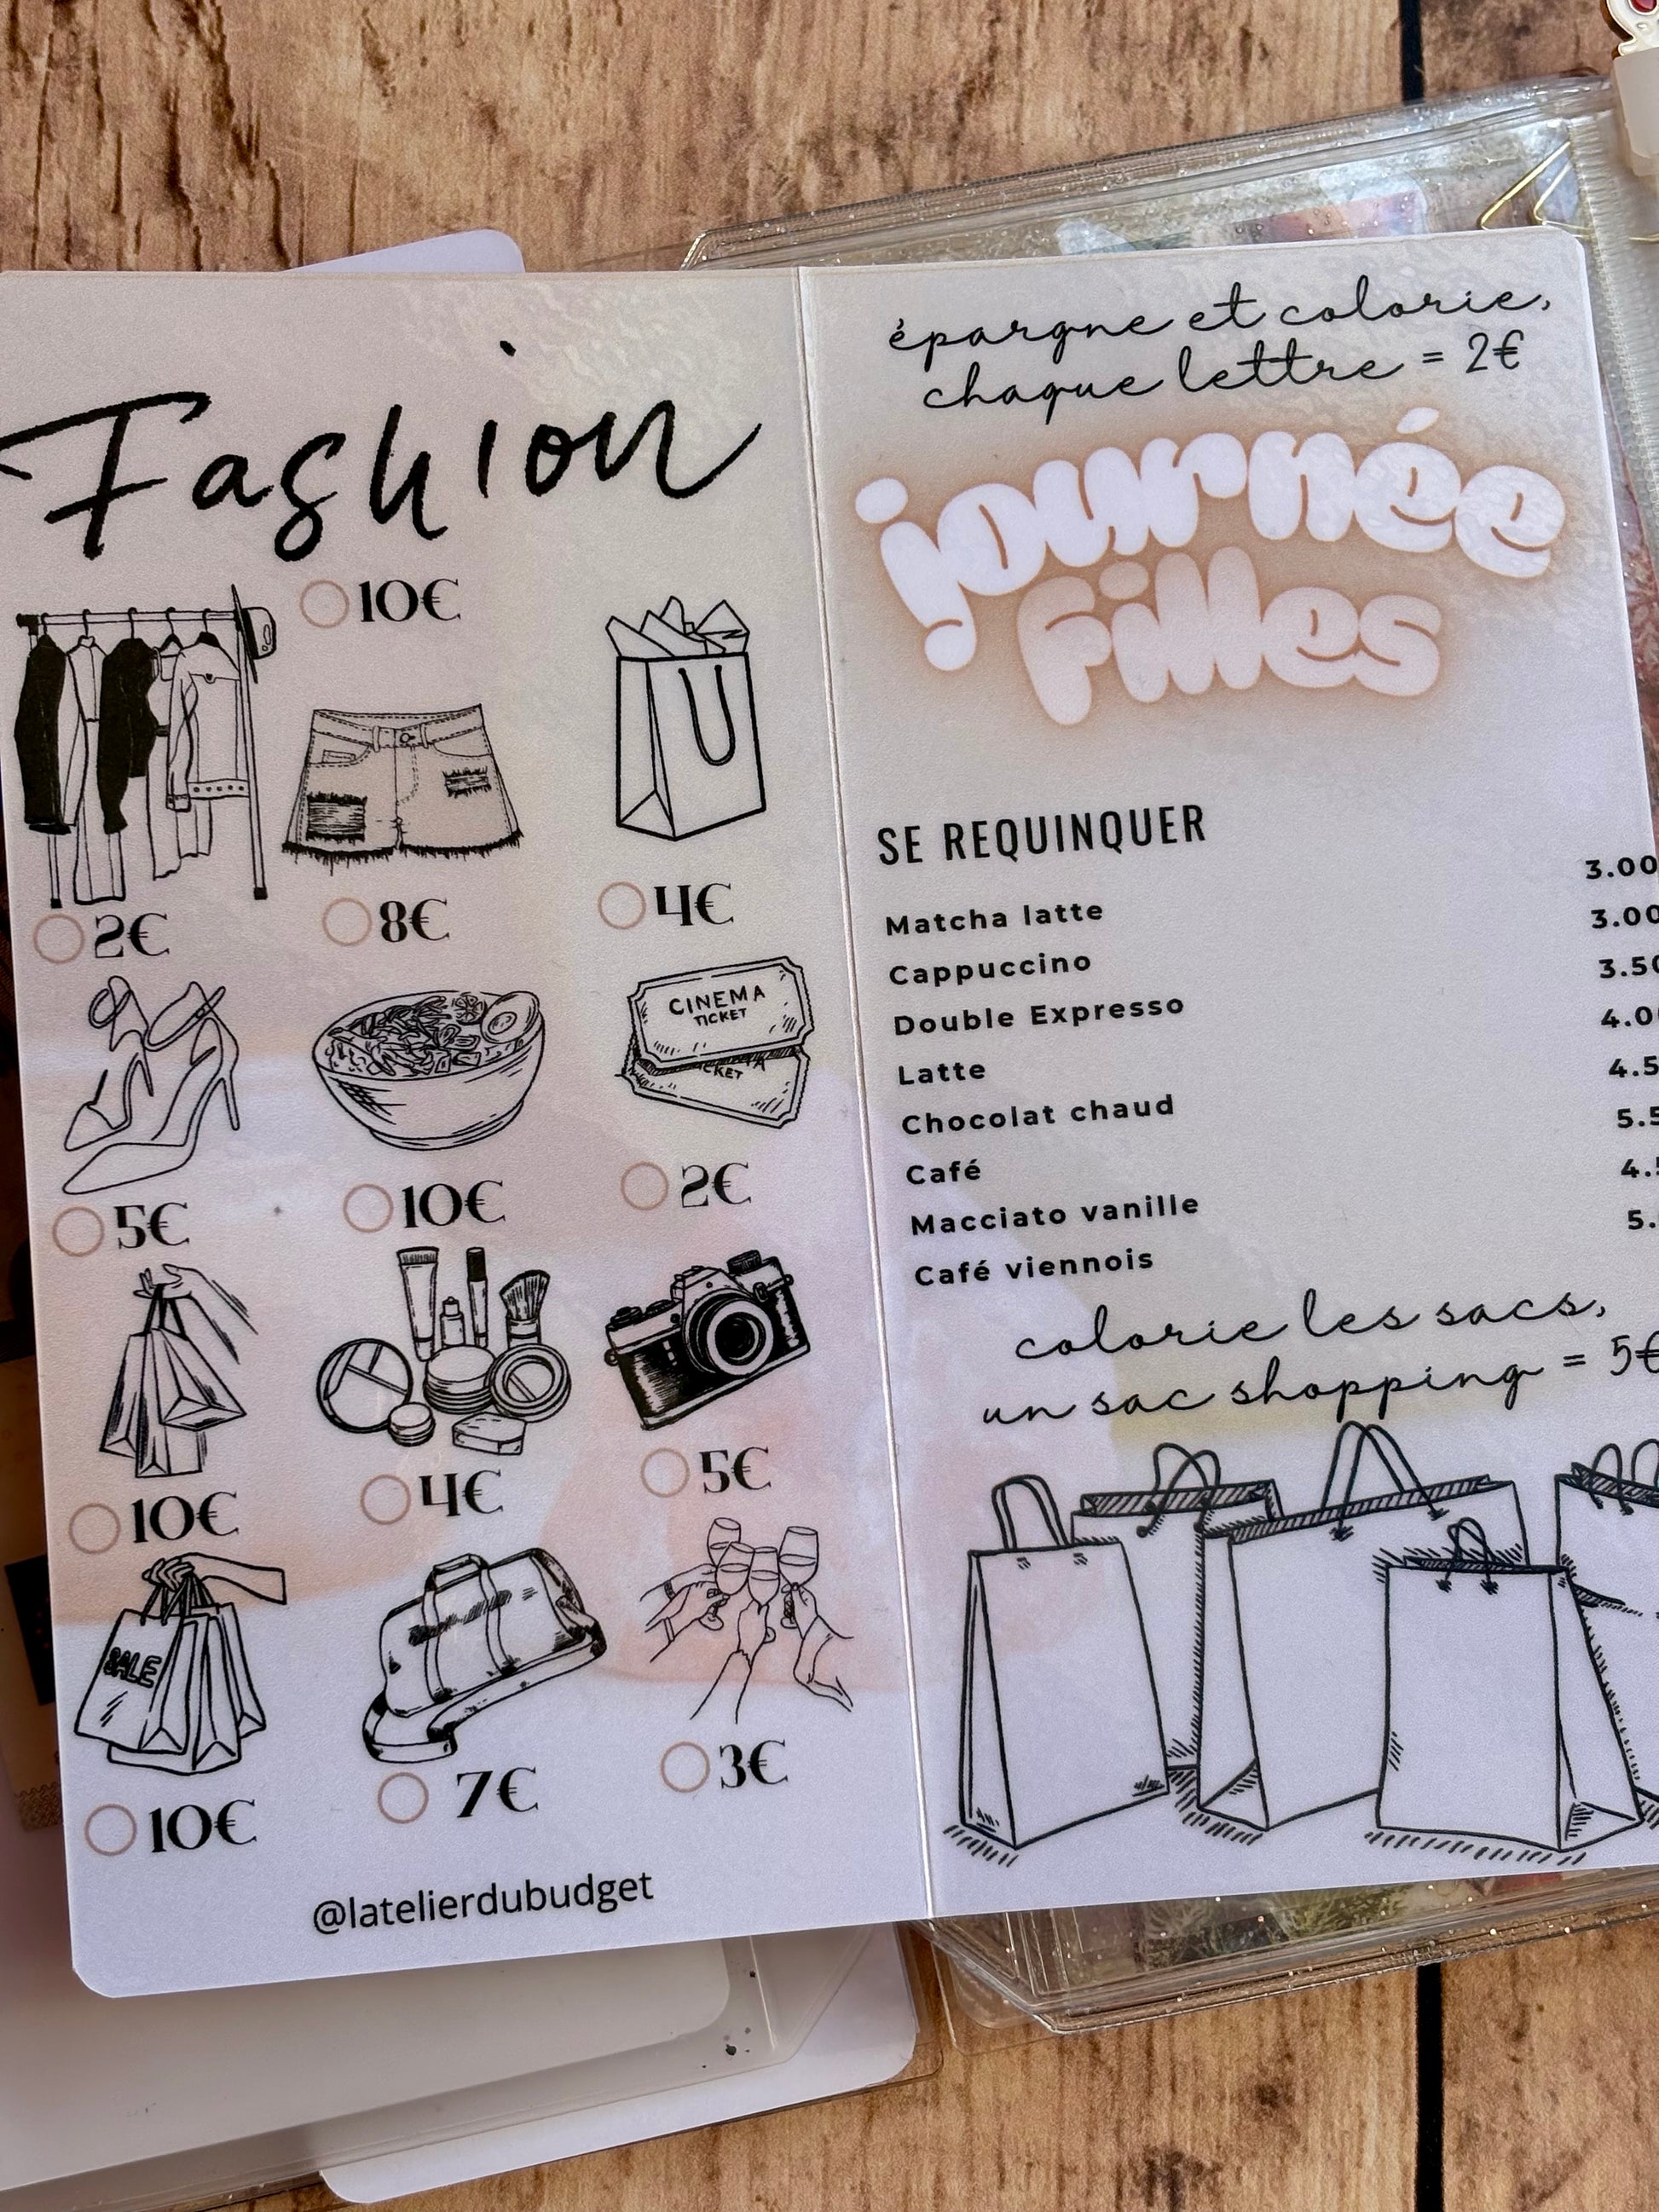 Fashion
10€
2€
8€
4€
CINEMA
TICKET
5€
10€
2€
10€
4€
5€
SALE
10€
7€
3€
@latelierdubudget
épargne et colorie,
chaque lettre = 2€
journée
filles
SE REQUINQUER
3.00
Matcha latte
3.00
Cappuccino
3.50
Double Expresso
4.00
Latte
4.5
Chocolat chaud
5.5
Café
4.5
Macciato vanille
5.
Café viennois
colorie les sacs,
un sac shopping = 5€